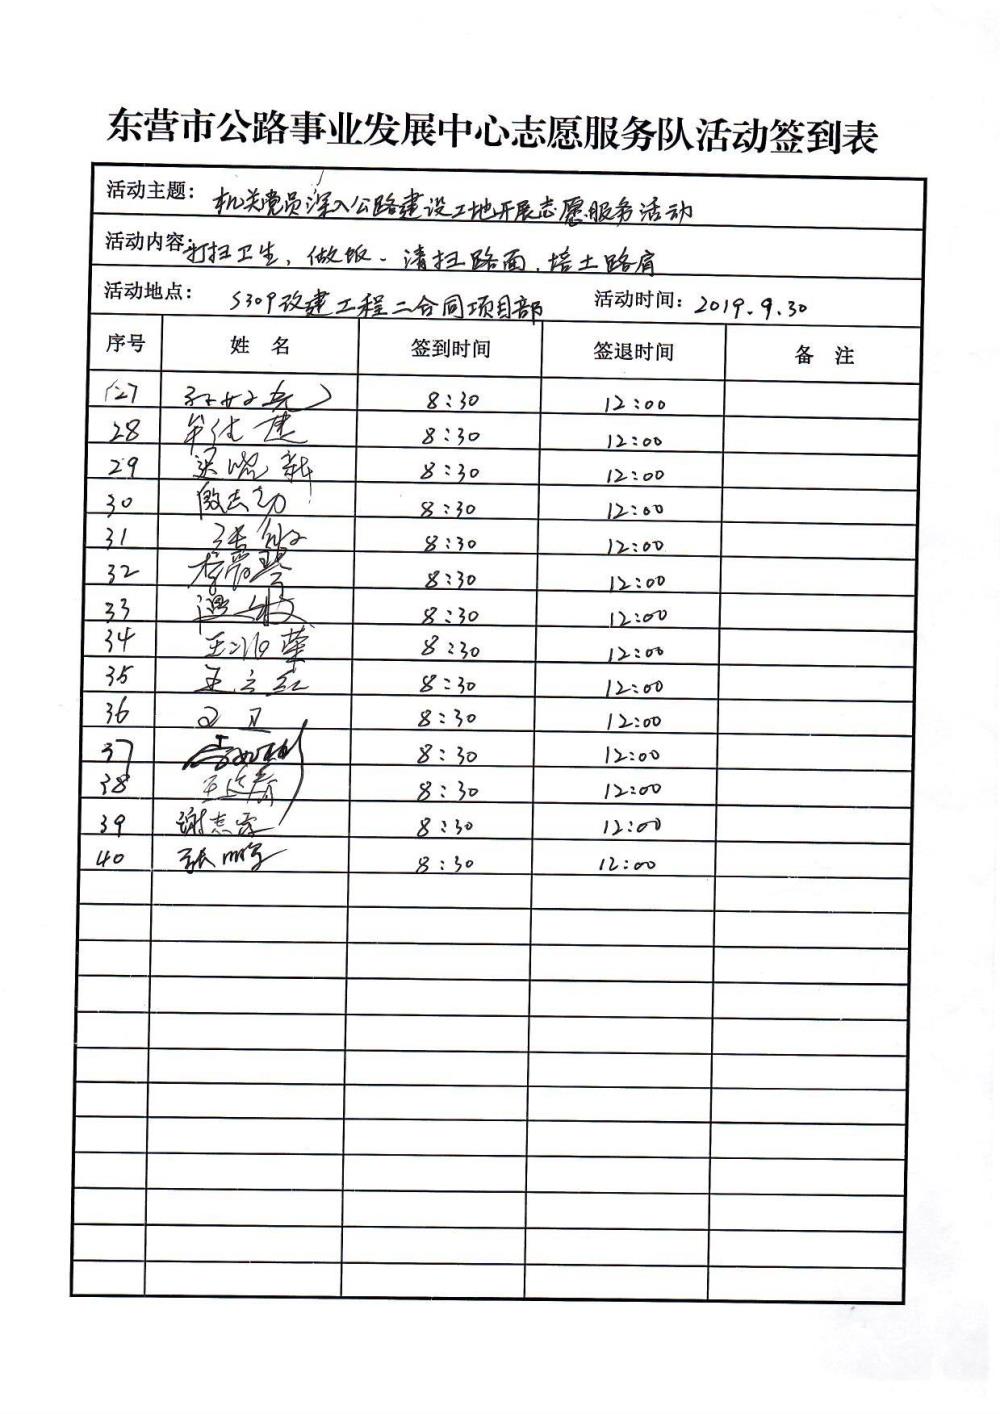 东营市公路事业发展中心志愿服务队活动签到表
活动主题：机关党员深入公路建设工地开展志愿服务活动
活动内容：打扫卫生，做饭、清扫路面、培土路肩
活动地点：S309改建工程二合同项目部 活动时间：2019.9.30
序号 姓 名 签到时间 签退时间 备 注
27 8:30 12:00
28 8:30 12:00
29 8:30 12:00
30 8:30 12:00
31 8:30 12:00
32 8:30 12:00
33 8:30 12:00
34 8:30 12:00
35 王立红 8:30 12:00
36 8:30 12:00
37 8:30 12:00
38 8:30 12:00
39 谢志 8:30 12:00
40 张 8:30 12:00